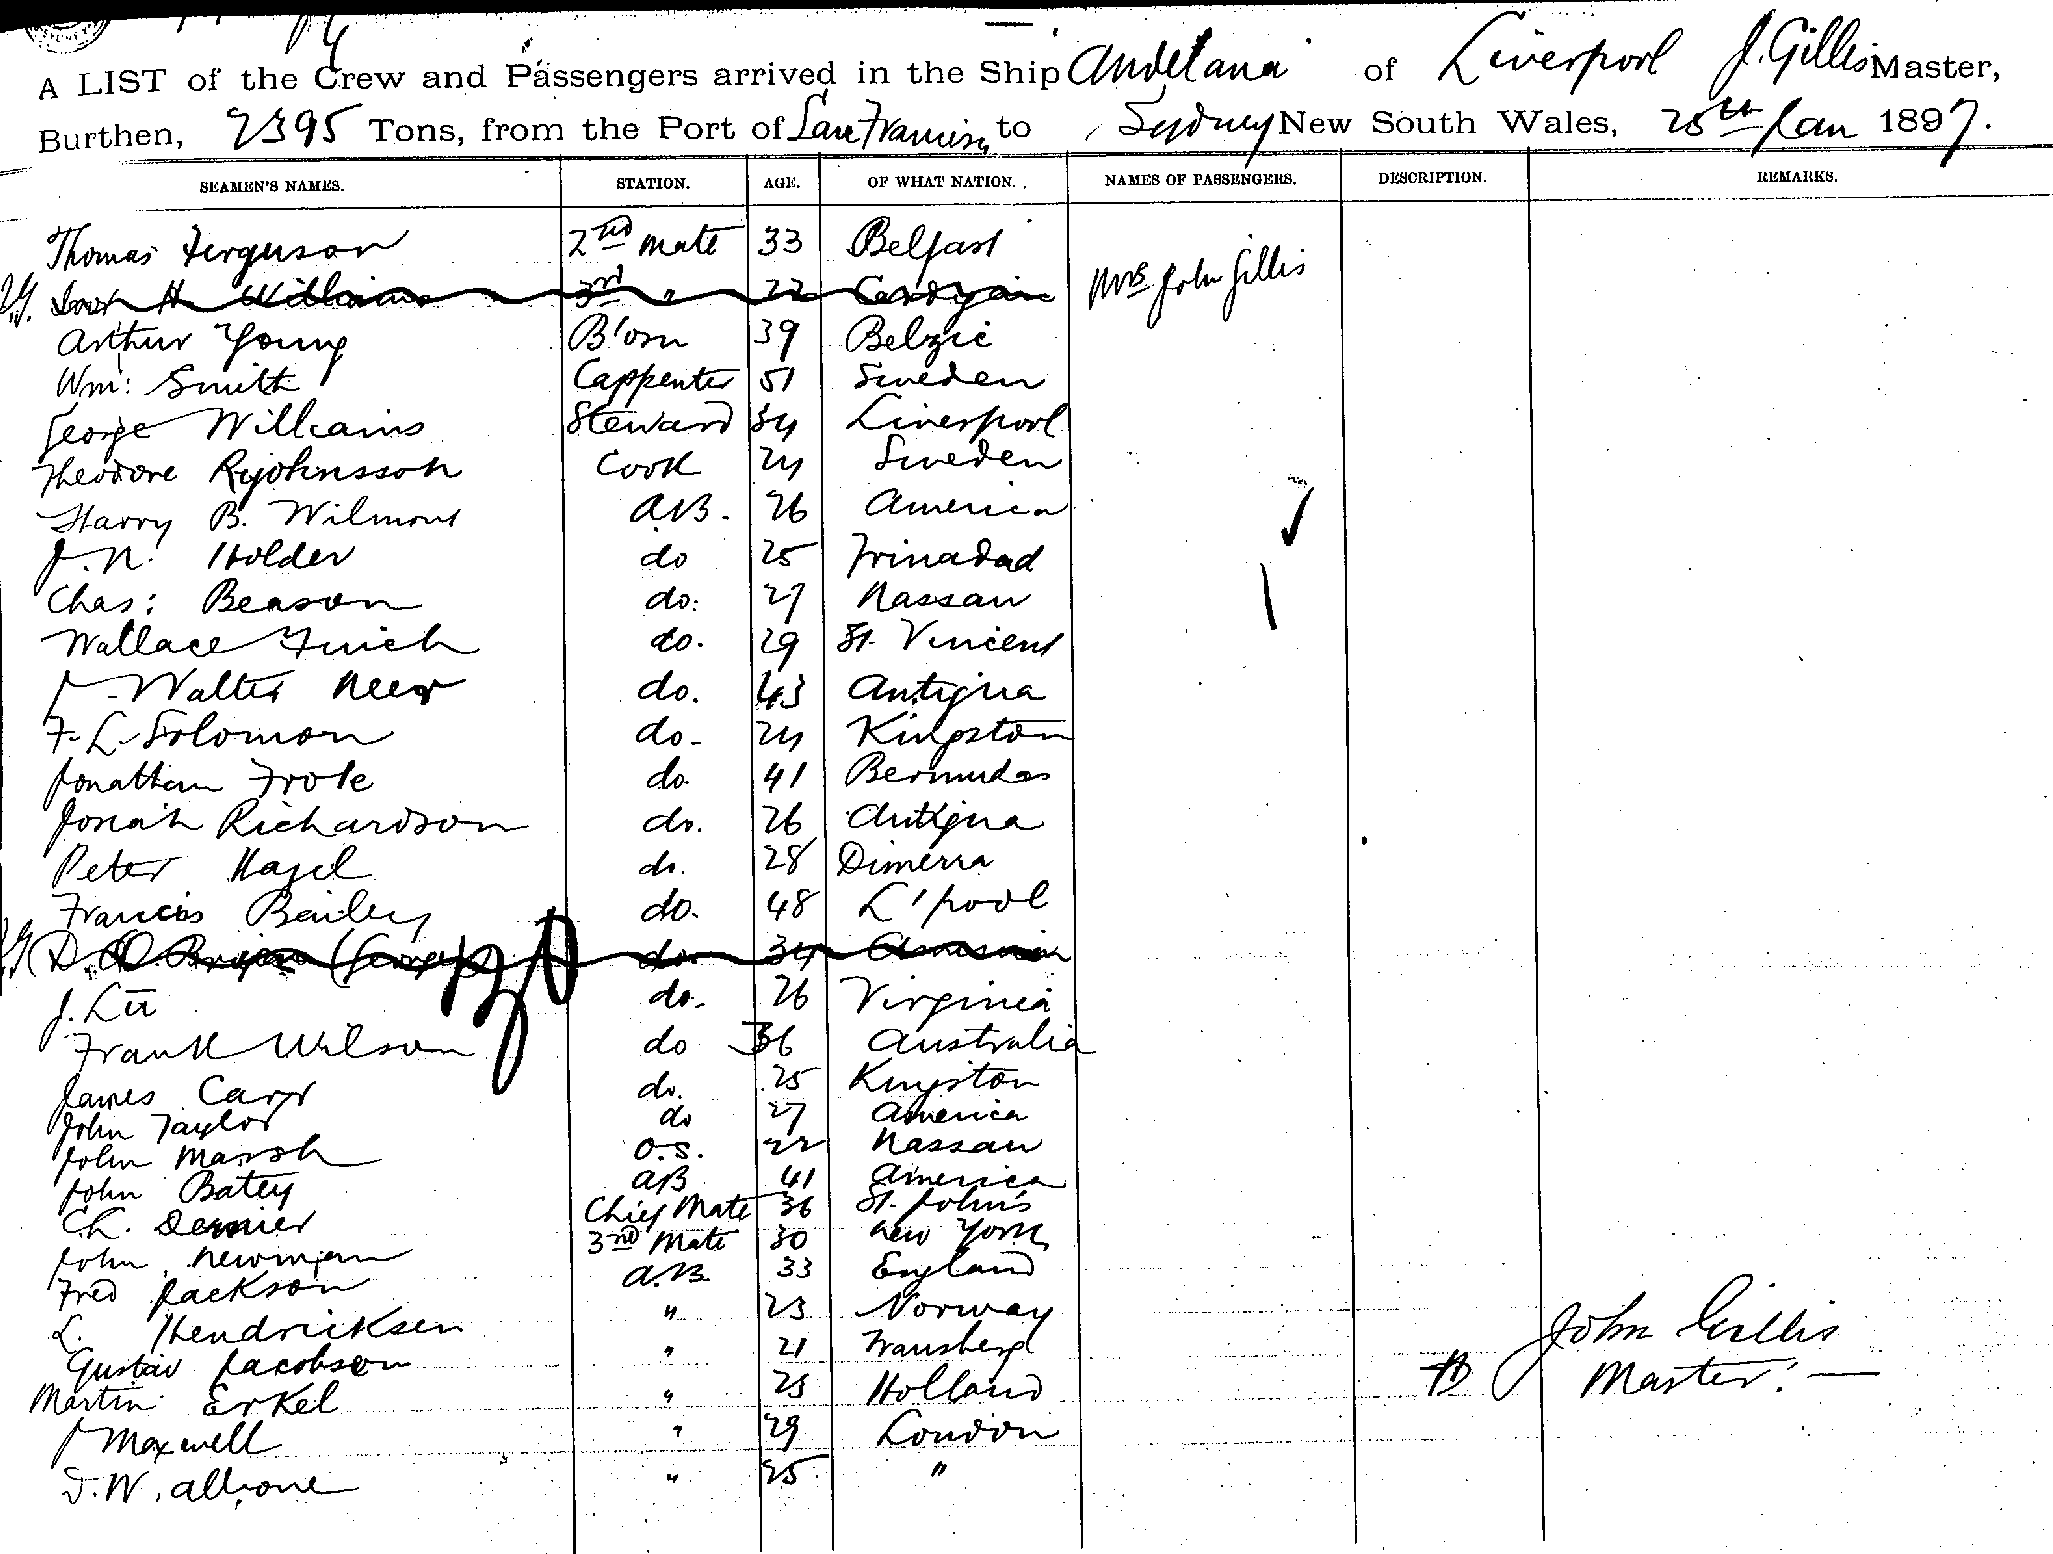 A LIST of the Crew and Passengers arrived in the Ship Andelana of Liverpool J. Gillis Master,
Burthen, 2395 Tons, from the Port of San Francisco to Sydney New South Wales, 25th Jan 1897.
SEAMEN'S NAMES. STATION. AGE. OF WHAT NATION. NAMES OF PASSENGERS. DESCRIPTION. REMARKS.
Thomas Ferguson 2nd Mate 33 Belfast
H. Williams 3rd " 22 Cardigan Mrs John Gillis
Arthur Young B'osn 39 Belgic
Wm: Smith Cappenter 51 Sweden
George Williams Steward 34 Liverpool
Theodore Cook 24 Sweden
Harry B. Wilmont A.B. 26 America
J. N. Holder do 25 Trinadad
Chas: Beason do. 27 Nassau
Wallace Finch do. 29 St. Vincent
J. Walter Neer do. 43 Antigua
F. L. Solomon do- 24 Kingston
Jonathan do. 41 Bermudas
Josiah Richardson do. 26 Antigua
Peter Hazel do. 28 Dimerra
Francis Bailey do. 48 L'pool
D. (George) do. 34
J. Lee do. 26 Virginia
Frank Wilson do 36 Australia
James Carr do. 25 Kingston
John Taylor do 27 America
John Marsh O.S. 22 Nassau
John Batey AB 41 America
Ch. Dernier Chief Mate 36 St. John's
John Newman 3rd Mate 30 New York
Fred Jackson A.B. 33 England
L. Hendricksen " 23 Norway
Gustav Jacobsen " 21
Martin Erkel " 25 Holland
J Maxwell " 29 London
D. W. " 25 "
John Gillis
Master. —